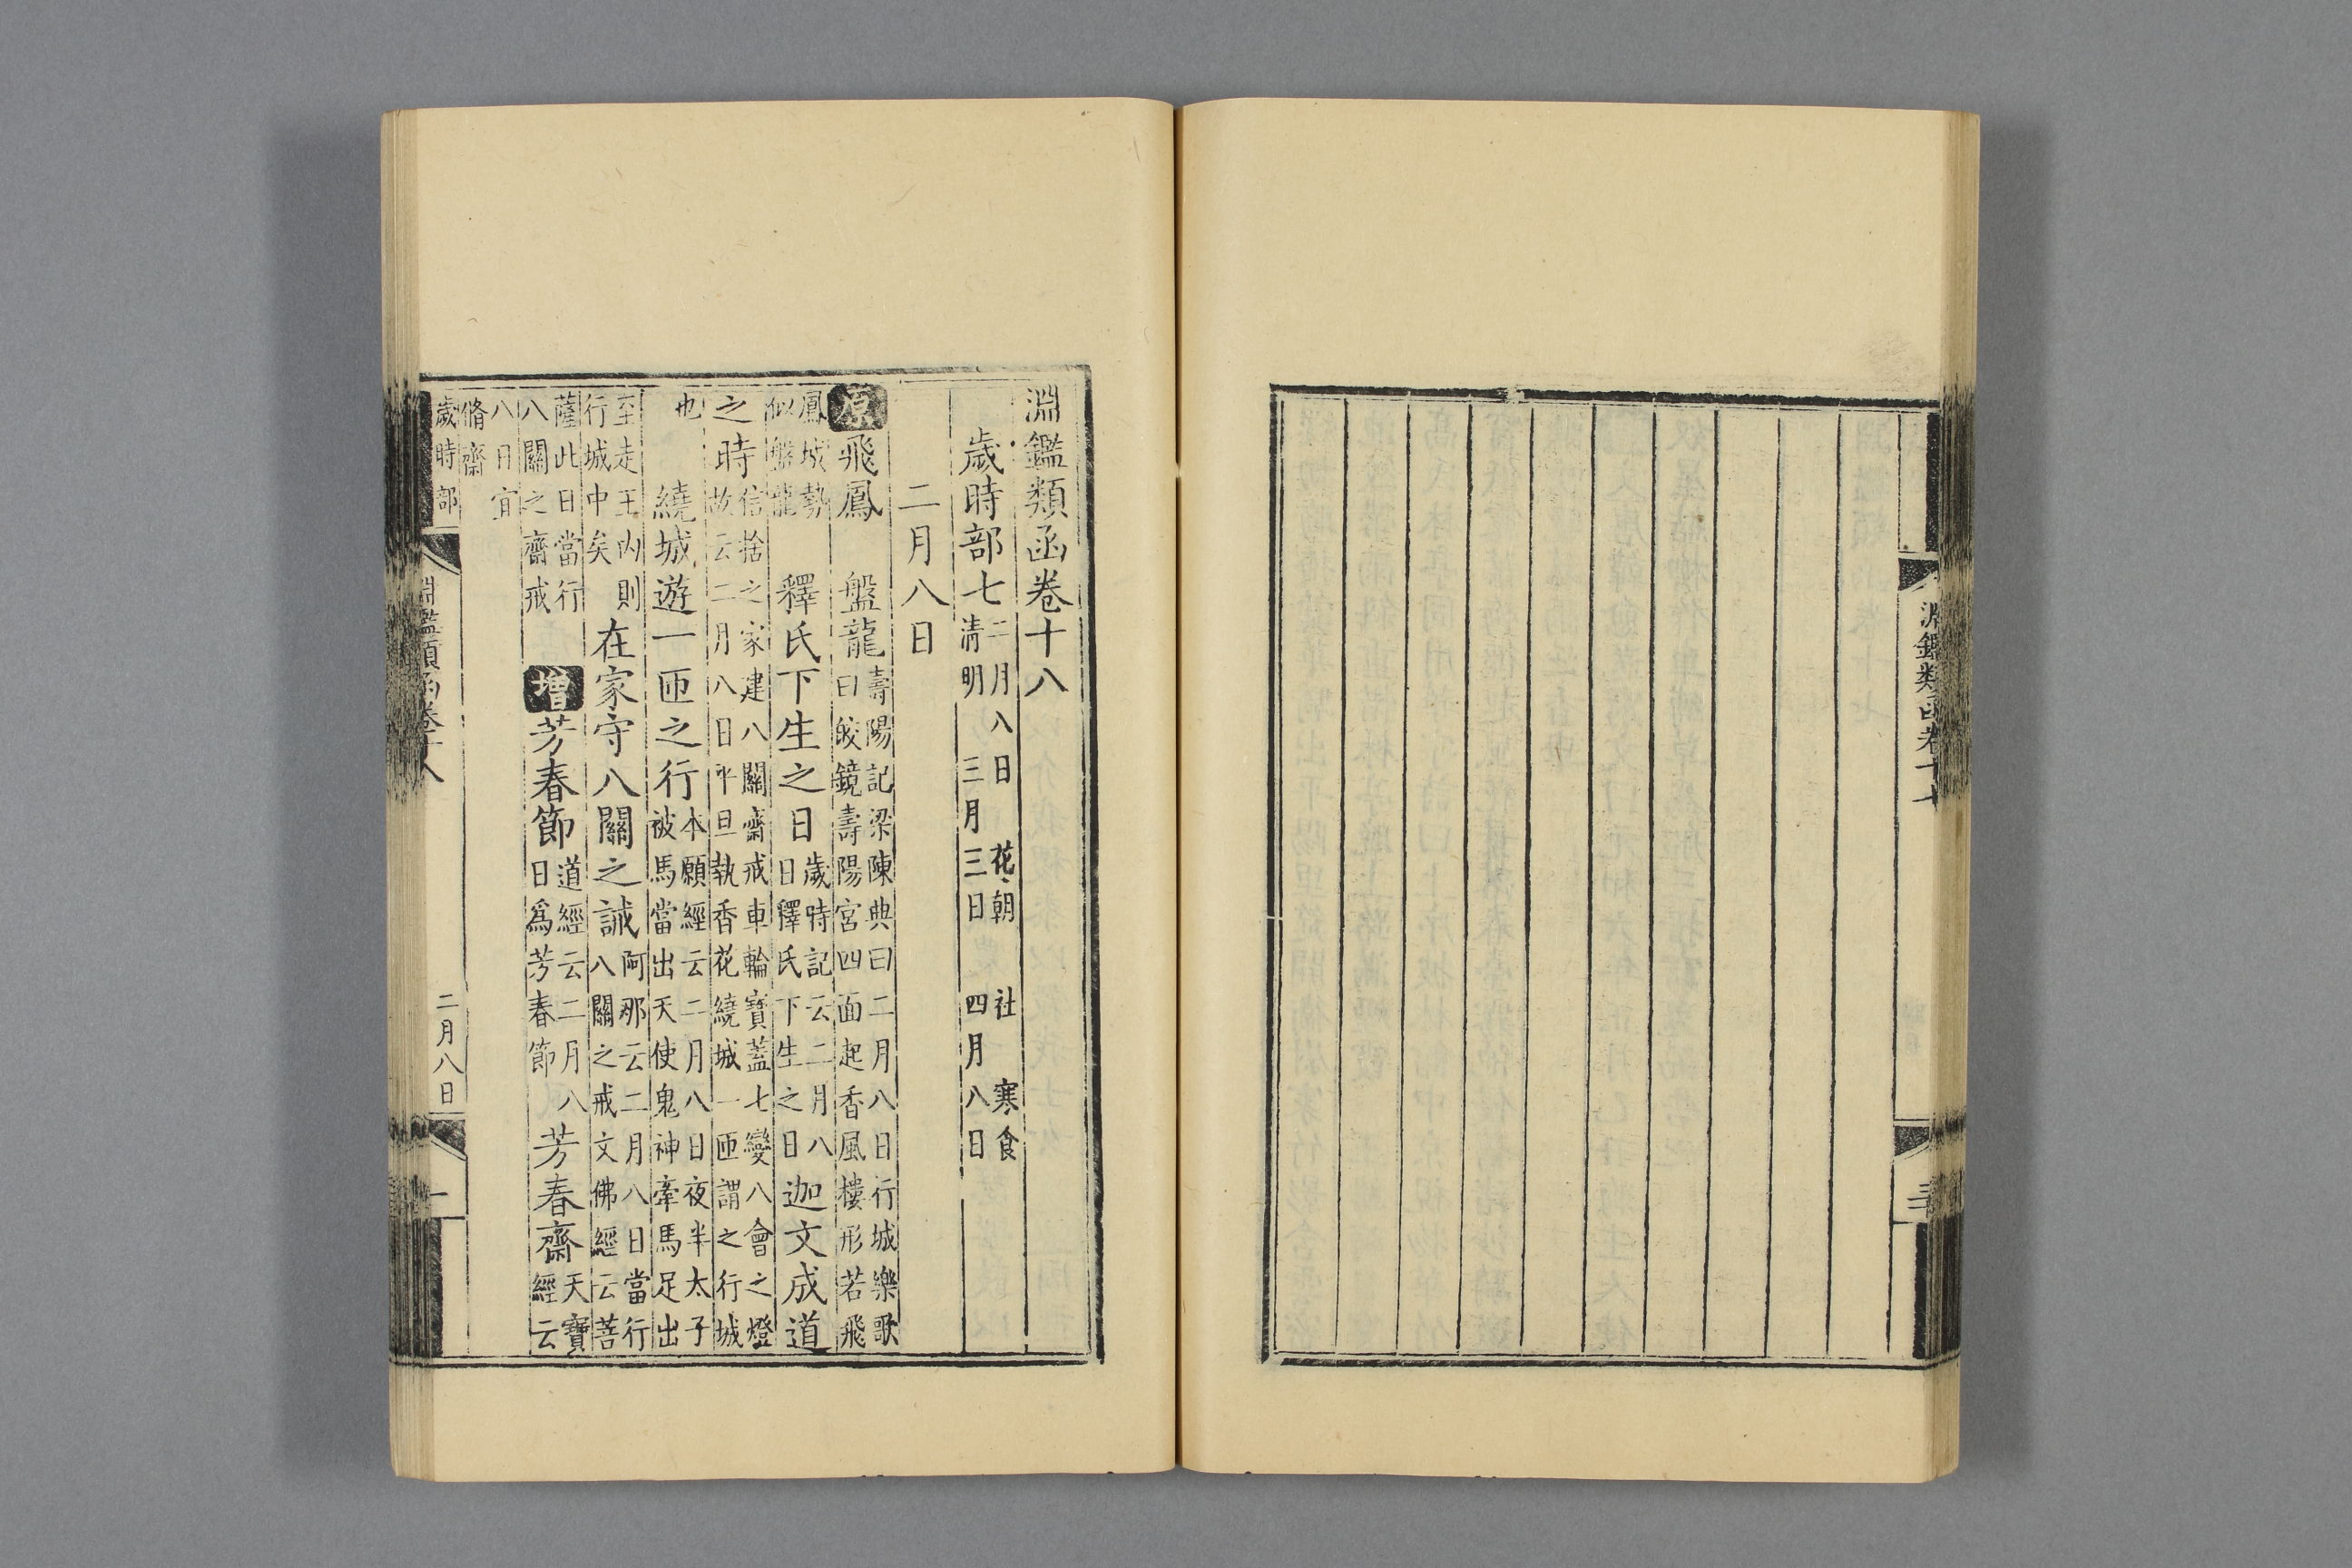 淵鑑類函卷十七
淵鑑類函卷十八
歲時部七二月八日 花朝 社 寒食清明 三月三日 四月八日
二月八日
原飛鳳 盤龍壽陽記梁陳典曰二月八日行城樂歌曰皎鏡壽陽宮四面起香風樓形若飛
鳳城勢似盤龍 釋氏下生之日歲時記云二月八日釋氏下生之日迦文成道
之時信捨之家建八關齋戒車輪寶蓋七變八會之燈故云二月八日平旦執香花繞城一匝謂之行城
也 繞城遊一匝之行本願經云二月八日夜半太子被馬當出天使鬼神牽馬足出
至走王內則行城中矣 在家守八關之誡阿那云二月八日當行八關之戒文佛經云菩
薩此日當行八關之齋戒 增芳春節道經云二月八日爲芳春節 芳春齋天寶經云
八日宜脩齋
歲時部 淵鑑類函卷十八 二月八日 一